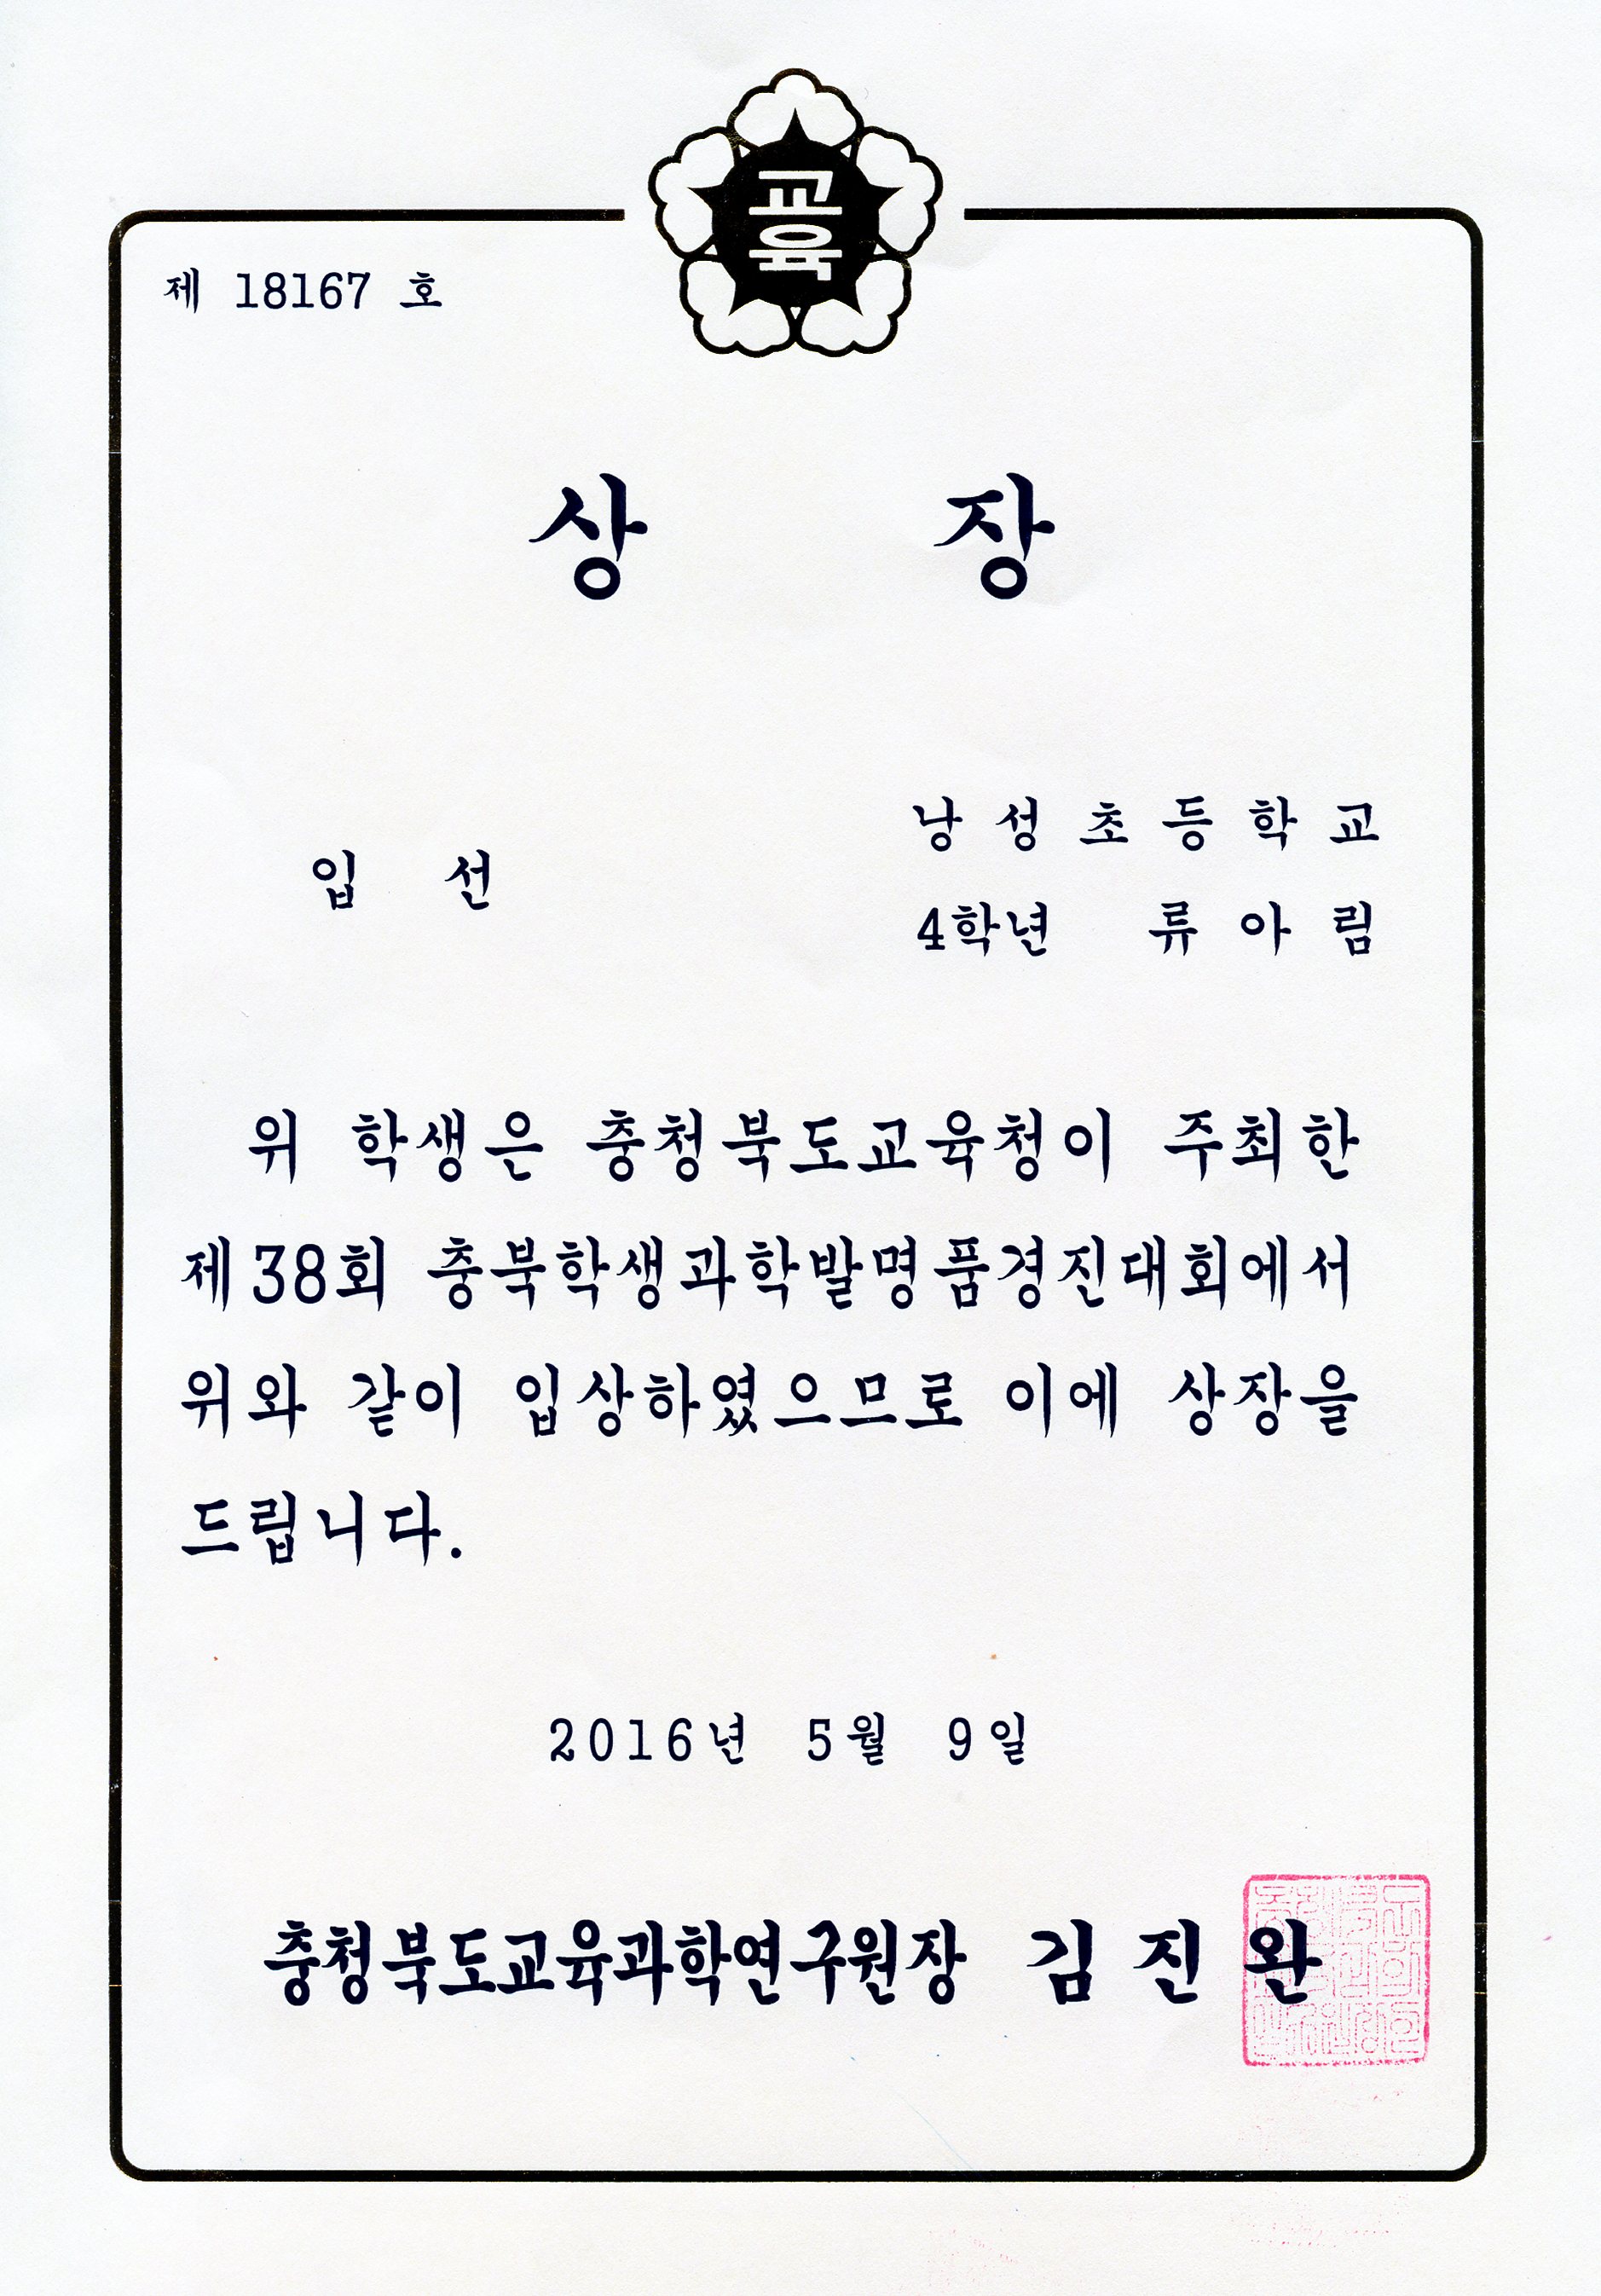 교육
제 18167 호
상 장
낭성초등학교
입 선
4학년 류아림
위 학생은 충청북도교육청이 주최한
제38회 충북학생과학발명품경진대회에서
위와 같이 입상하였으므로 이에 상장을
드립니다.
2016년 5월 9일
충청북도교육과학연구원장 김진완